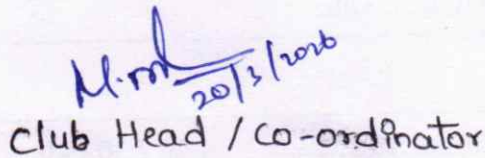 20/3/2026
Club Head / Co-ordinator